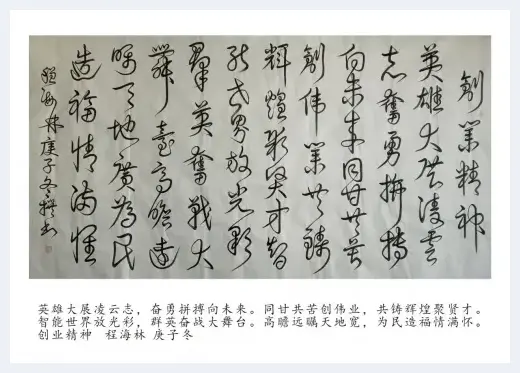 創業精神
英雄大展凌雲
志奮勇拼搏
向未来同甘共苦
創偉業共鑄
輝煌聚賢才智
能世界放光彩
羣英奮戰大
舞臺高瞻遠
矚天地廣為民
造福情滿懷
程海林庚子冬撰书
英雄大展凌云志，奋勇拼搏向未来。同甘共苦创伟业，共铸辉煌聚贤才。
智能世界放光彩，群英奋战大舞台。高瞻远瞩天地宽，为民造福情满怀。
创业精神 程海林 庚子冬